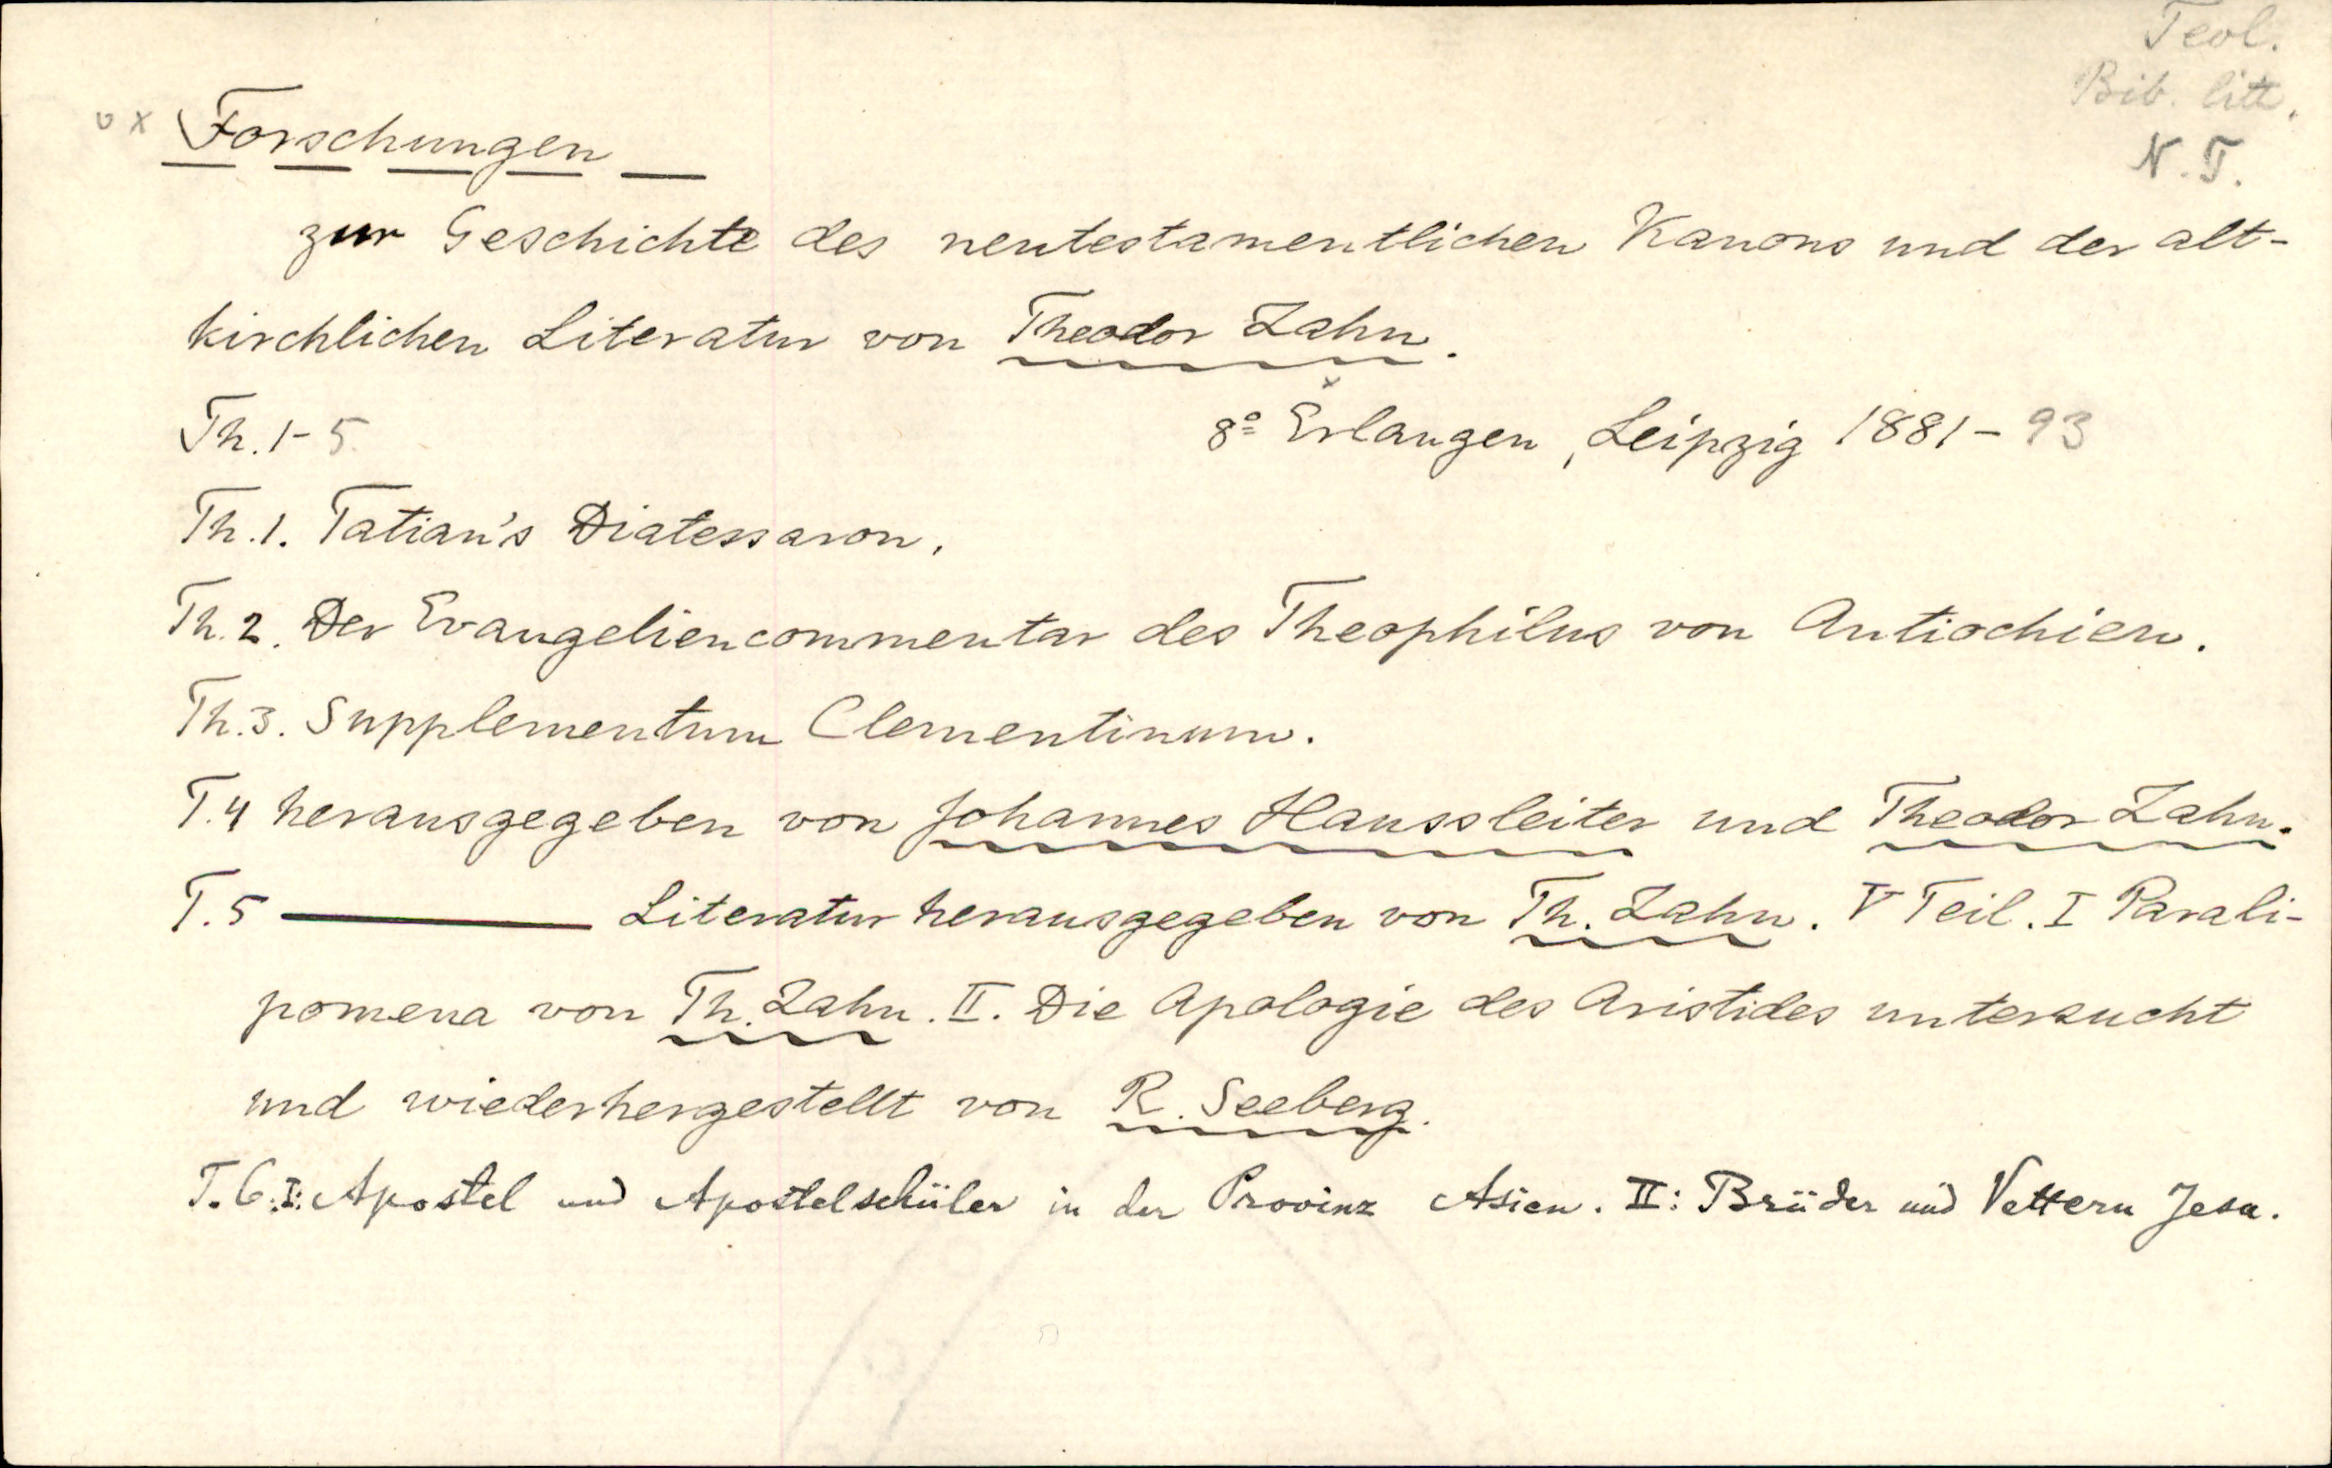 Teol.
Bib. litt.
N.T.
v x Forschungen
zur Geschichte des neutestamentlichen Kanons und der alt-
kirchlichen Literatur von Theodor Zahn.
Th. 1-5. 8º Erlangen, Leipzig 1881-93
Th. 1. Tatian's Diatessaron.
Th. 2. Der Evangeliencommentar des Theophilus von Antiochien.
Th. 3. Supplementum Clementinum.
T. 4 herausgegeben von Johannes Haussleiter und Theodor Zahn.
T. 5 —— Literatur herausgegeben von Th. Zahn. V Teil. I Parali-
pomena von Th. Zahn. II. Die Apologie des Aristides untersucht
und wiederhergestellt von R. Seeberg.
T. 6: I: Apostel und Apostelschüler in der Provinz Asien. II: Brüder und Vettern Jesu.